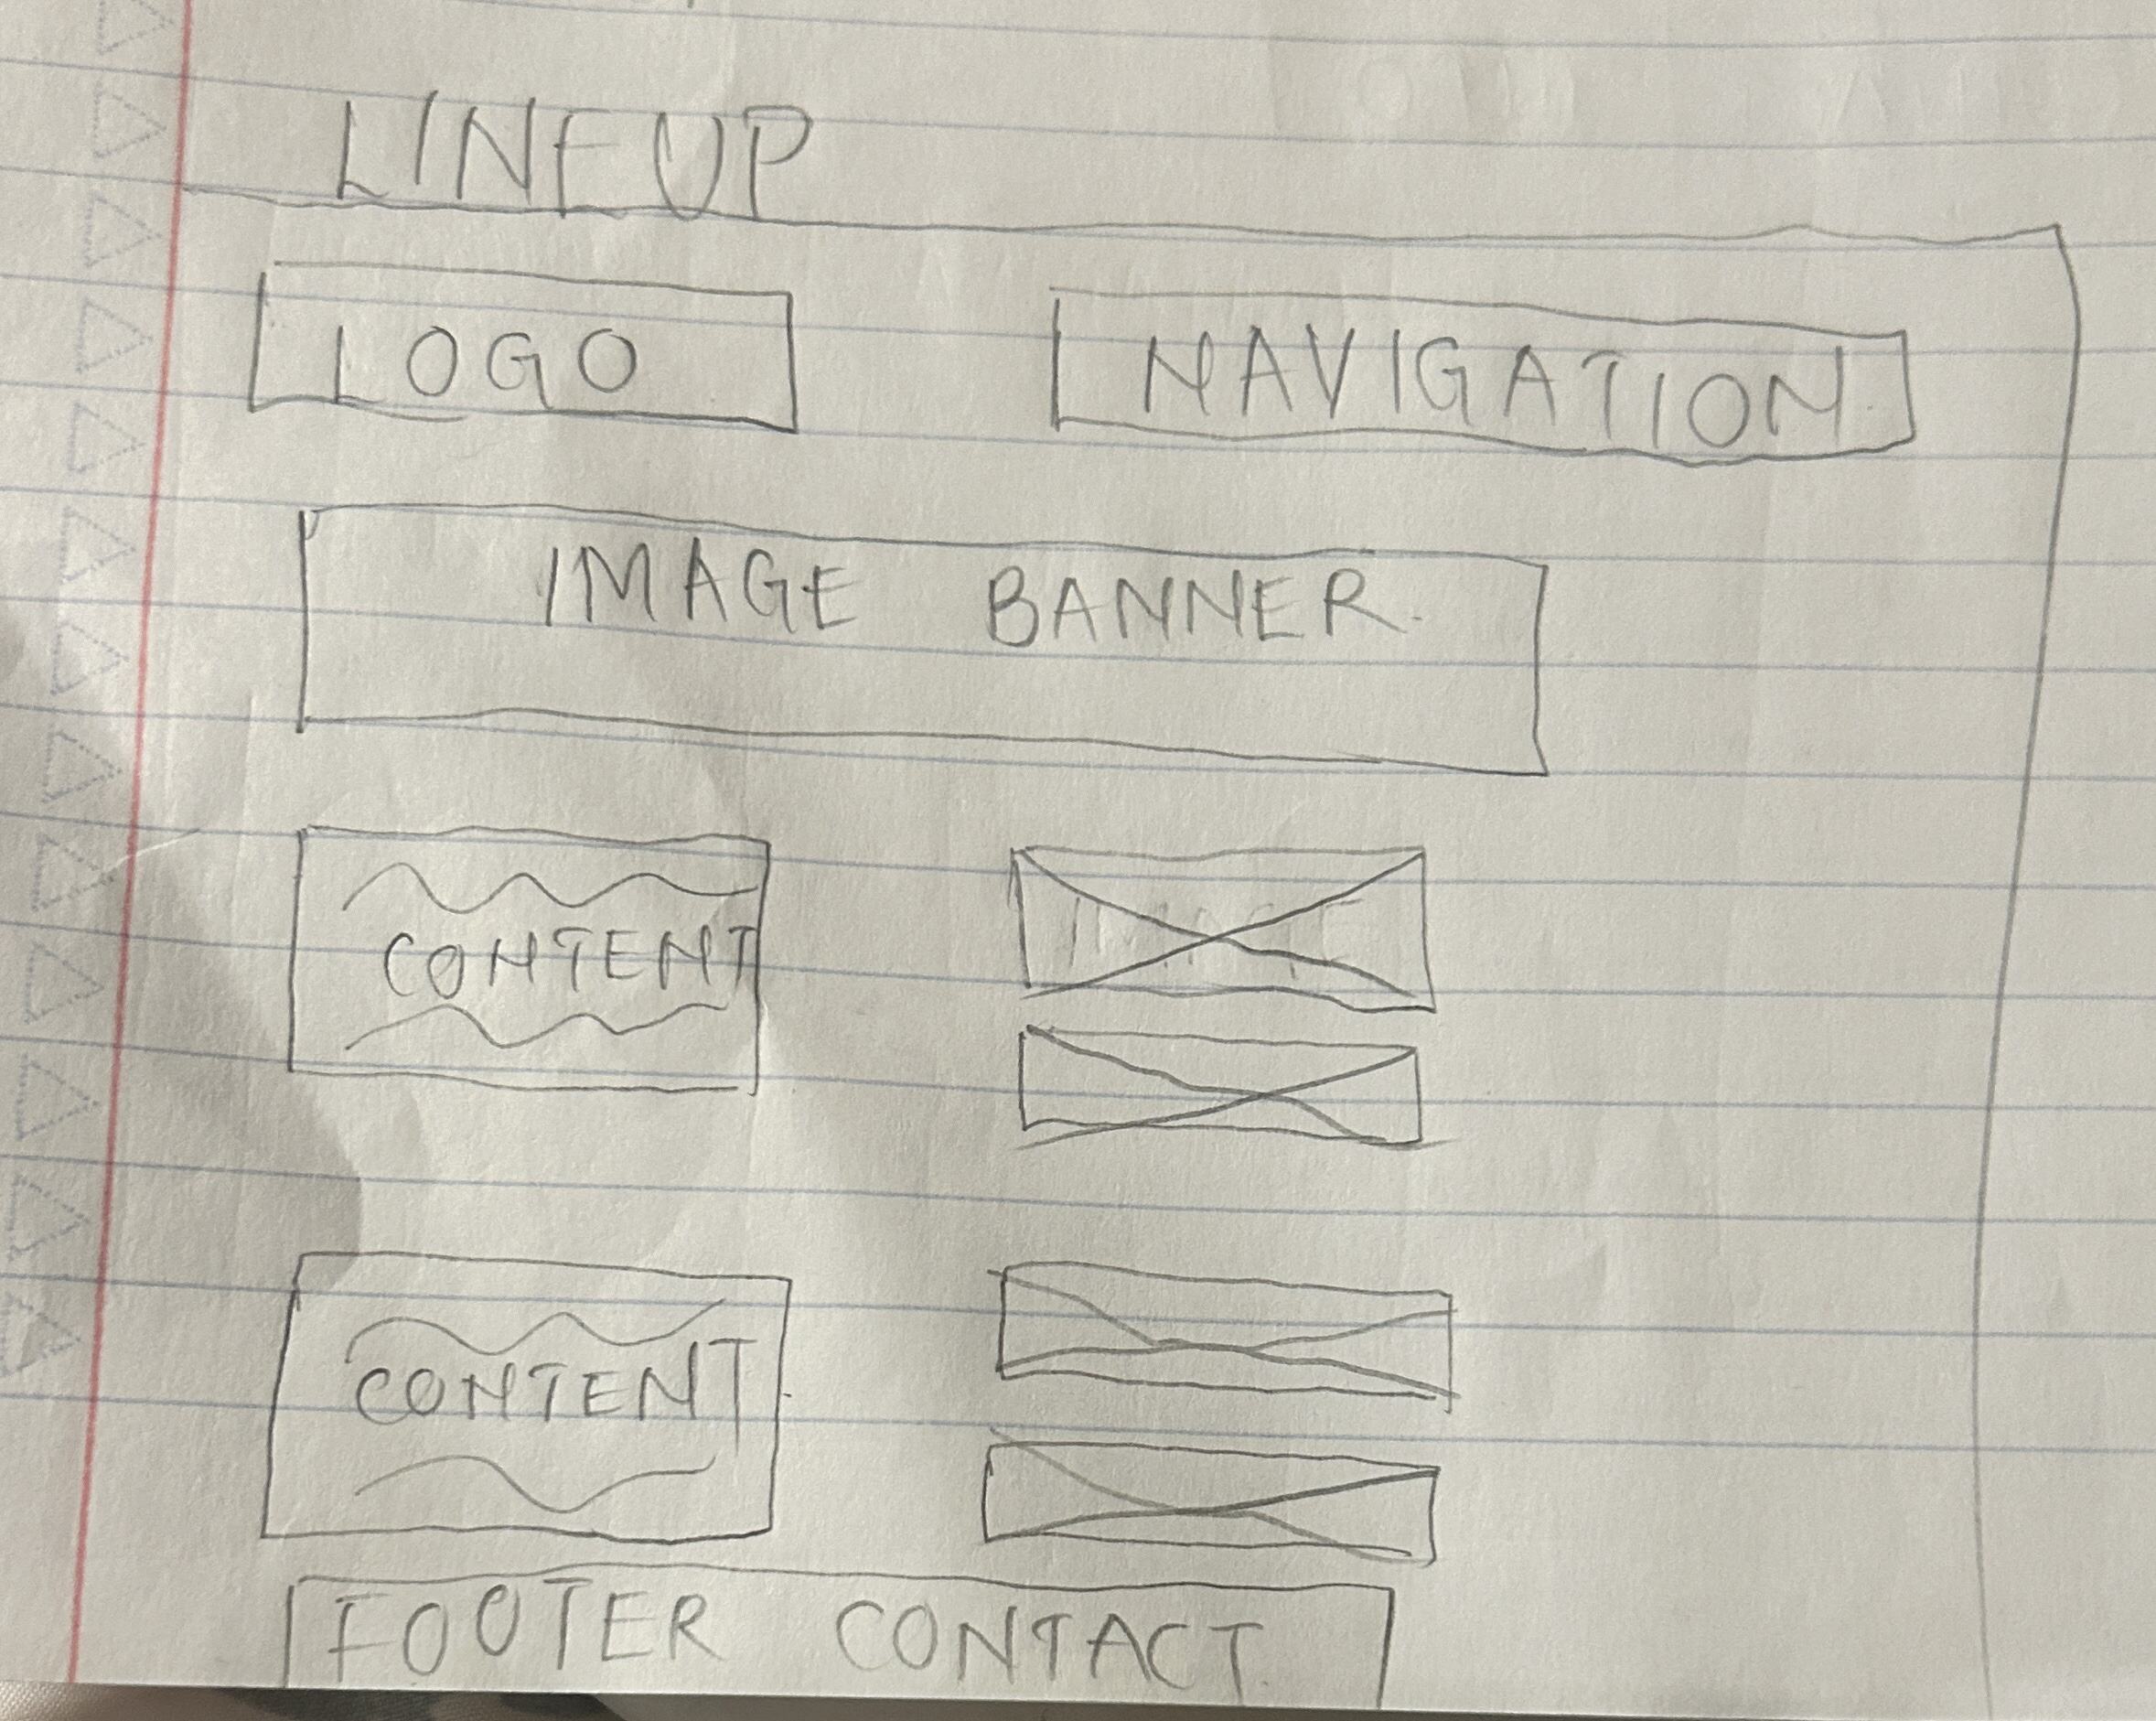 LINEUP
LOGO
NAVIGATION
IMAGE BANNER
CONTENT
IMAGE
CONTENT
FOOTER CONTACT